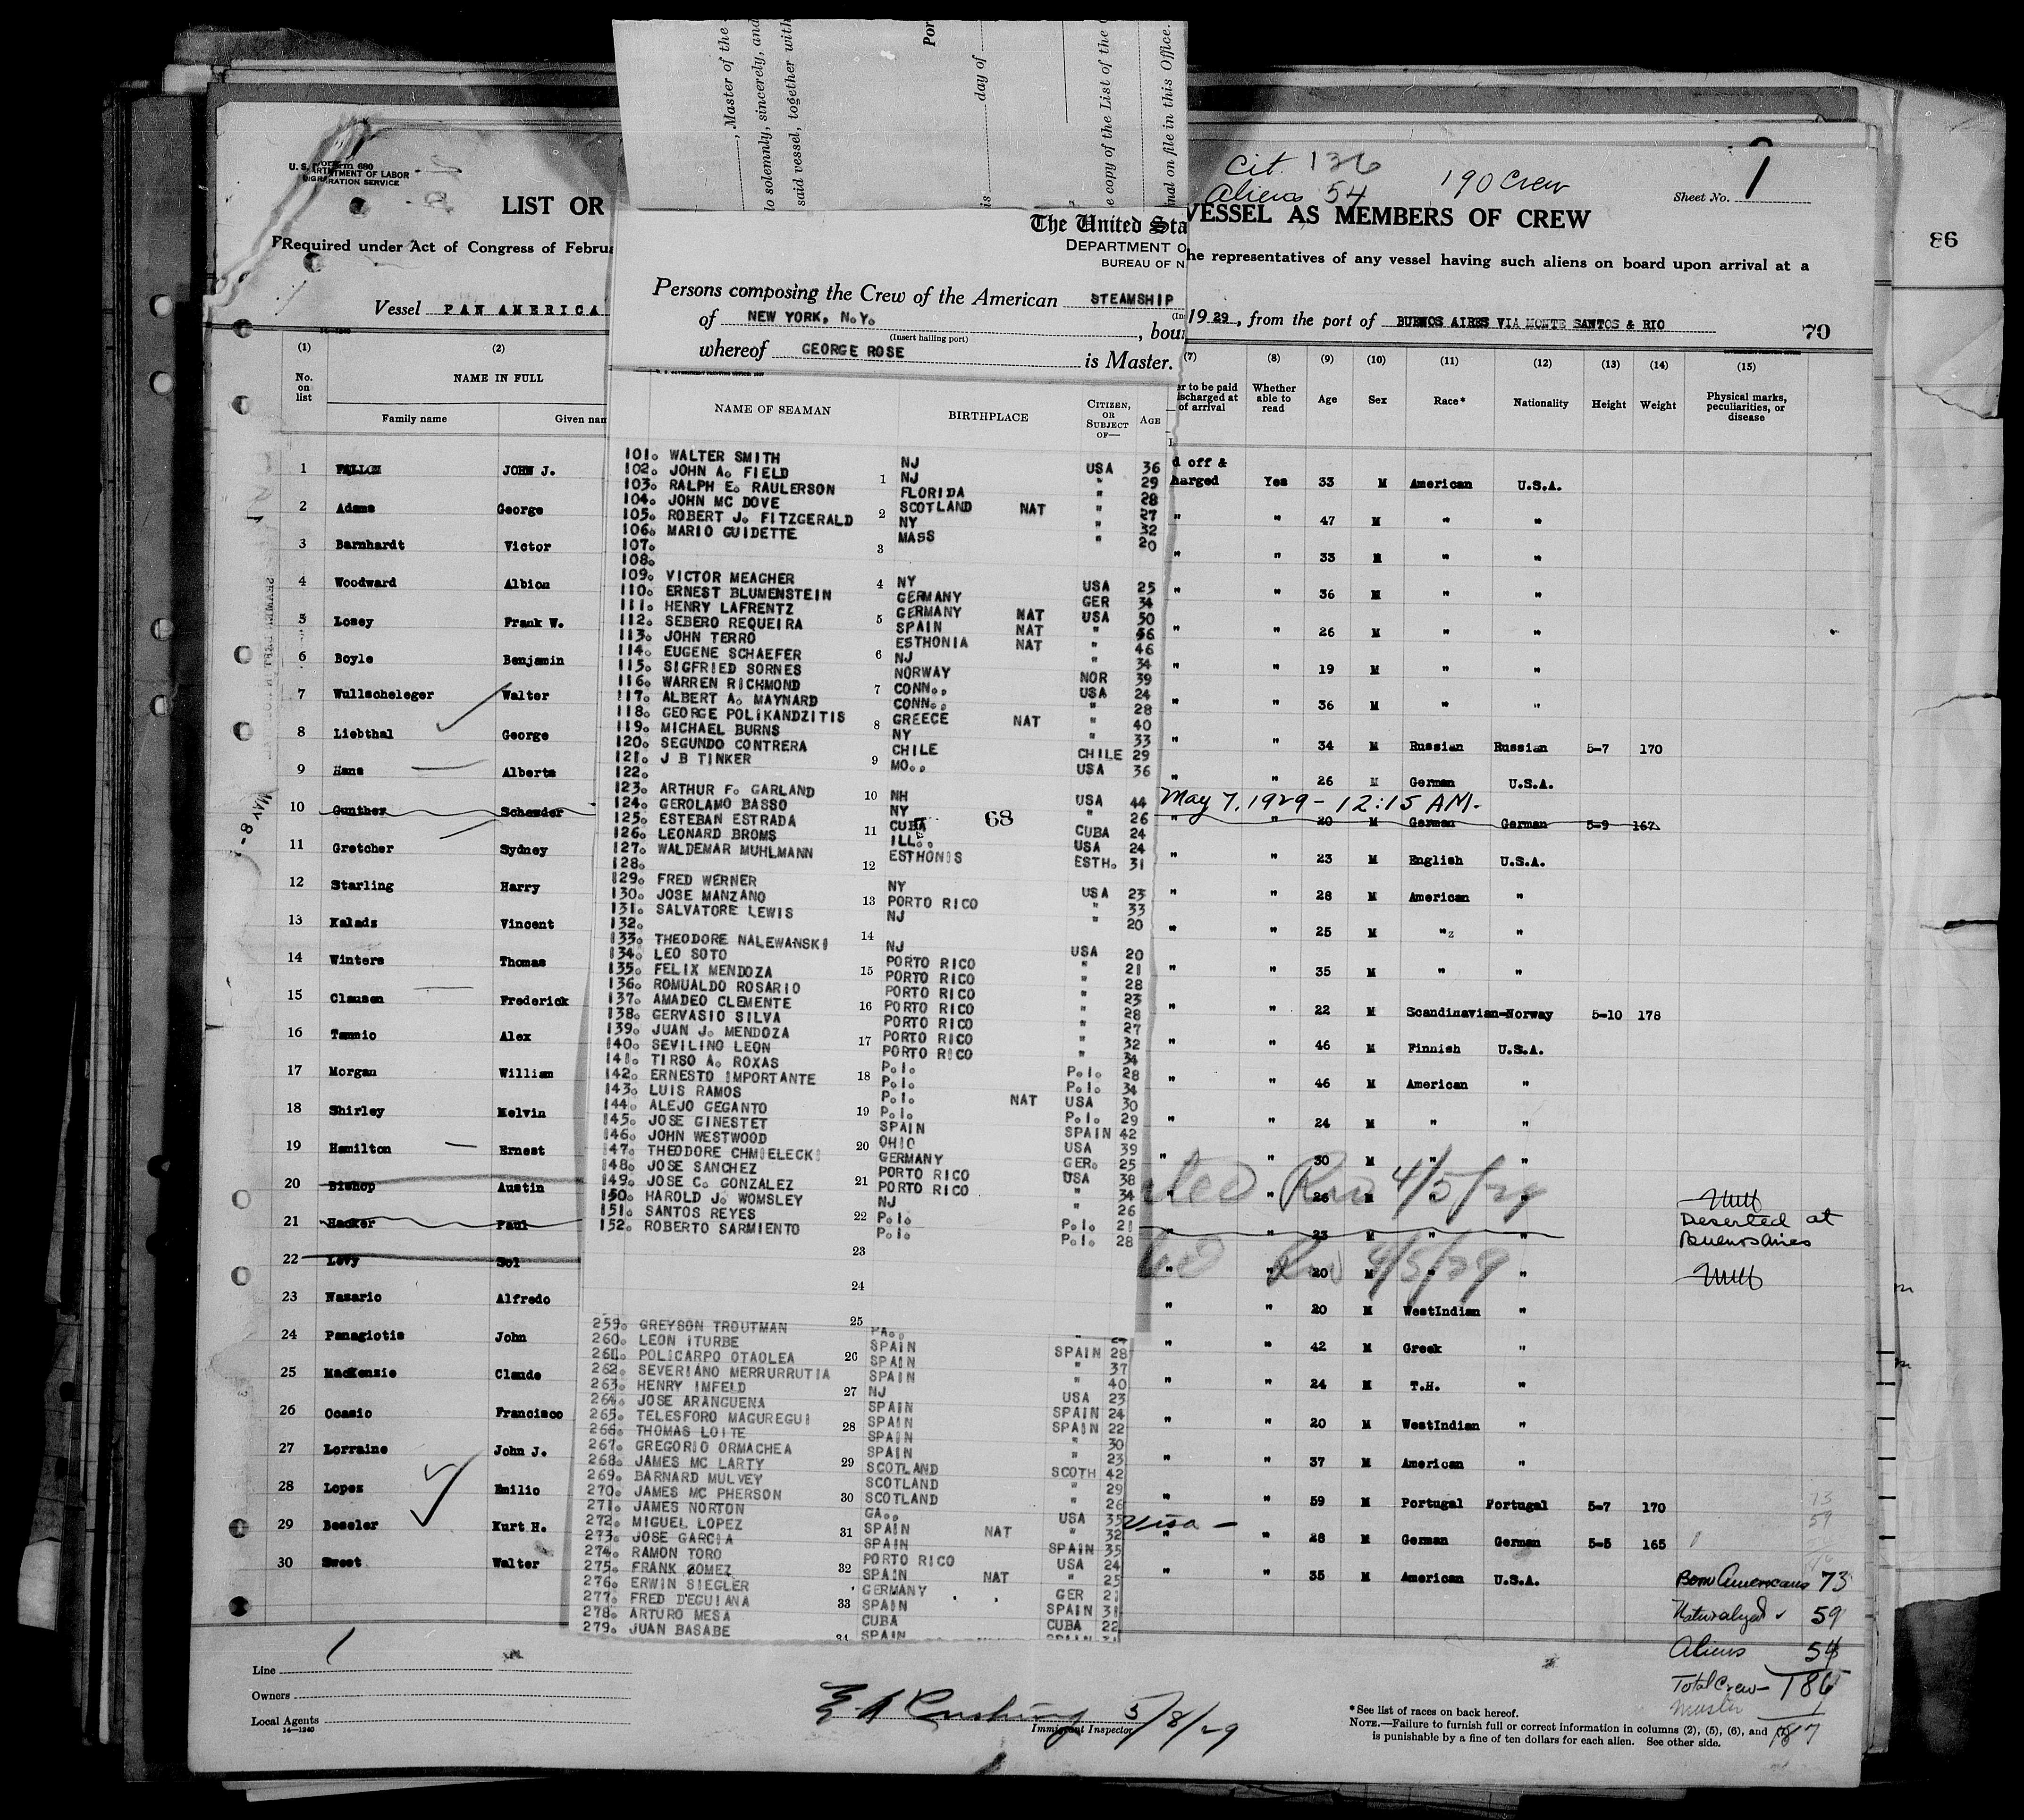 , Master of the
lo solemnly, sincerely, and
said vessel, together with
Por
is day of
e copy of the List of the
nal on file in this Office.
Cit. 136
Aliens 54
190 Crew
Sheet No. 1
Form 680
U. S. DEPARTMENT OF LABOR
IMMIGRATION SERVICE
LIST OR
VESSEL AS MEMBERS OF CREW
Required under Act of Congress of Februa
he representatives of any vessel having such aliens on board upon arrival at a
86
Vessel PAN AMERICA
1929, from the port of BUENOS AIRES VIA MONTE SANTOS & RIO
70
The United Sta
DEPARTMENT O
BUREAU OF N
Persons composing the Crew of the American STEAMSHIP
of NEW YORK, N.Y. , bou
(Insert hailing port)
whereof GEORGE ROSE is Master.
(1) (2) (7) (8) (9) (10) (11) (12) (13) (14) (15)
No. on list NAME IN FULL er to be paid ischarged at of arrival Whether able to read Age Sex Race* Nationality Height Weight Physical marks, peculiarities, or disease
Family name Given nam
NAME OF SEAMAN BIRTHPLACE CITIZEN, OR SUBJECT OF— AGE
1 FALLON JOHN J. d off & harged Yes 33 M American U.S.A.
2 Adams George " " 47 M " "
3 Barnhardt Victor " " 33 M " "
4 Woodward Albion " " 36 M " "
5 Losey Frank W. " " 26 M " "
6 Boyle Benjamin " " 19 M " "
7 Wullscheleger Walter " " 36 M " "
8 Liebthal George " " 34 M Russian Russian 5-7 170
9 Hans Alberts " " 26 M German U.S.A.
May 7, 1929 - 12:15 AM.
10 Gunther Schemder " " 20 M German German 5-9 167
11 Gretcher Sydney " " 23 M English U.S.A.
12 Starling Harry " " 28 M American "
13 Kalads Vincent " " 25 M "z "
14 Winters Thomas " " 35 M " "
15 Clausen Frederick " " 22 M Scandinavian-Norway 5-10 178
16 Tammio Alex " " 46 M Finnish U.S.A.
17 Morgan William " " 46 M American "
18 Shirley Melvin " " 24 M " "
19 Hamilton Ernest " " 30 M " "
20 Bishop Austin " " 26 M " "
4/5/29
21 Hacker Paul " " 23 M " " Deserted at Buenos Aires
22 Levy Sol 20 M " "
4/5/29
23 Nazario Alfredo " " 20 M WestIndian "
24 Panagiotis John " " 42 M Greek "
25 MacKenzie Claude " " 24 M T.H. "
26 Ocasio Francisco " " 20 M WestIndian "
27 Lorraine John J. " " 37 M American "
28 Lopez Emilio " " 59 M Portugal Portugal 5-7 170
29 Beseler Kurt H. Visa — " " 28 M German German 5-5 165
30 Sweet Walter " " 35 M American U.S.A.
101. WALTER SMITH NJ USA 36
102. JOHN A. FIELD NJ " 29
103. RALPH E. RAULERSON FLORIDA " 28
104. JOHN MC DOVE SCOTLAND NAT " 27
105. ROBERT J. FITZGERALD NY " 32
106. MARIO GUIDETTE MASS " 20
107.
108.
109. VICTOR MEAGHER NY USA 25
110. ERNEST BLUMENSTEIN GERMANY GER 34
111. HENRY LAFRENTZ GERMANY NAT USA 50
112. SEBERO REQUEIRA SPAIN NAT " 56
113. JOHN TERRO ESTHONIA NAT " 46
114. EUGENE SCHAEFER NJ " 34
115. SIGFRIED SORNES NORWAY NOR 39
116. WARREN RICHMOND CONN.. USA 24
117. ALBERT A. MAYNARD CONN.. " 28
118. GEORGE POLIKANDZITIS GREECE NAT " 40
119. MICHAEL BURNS NY " 33
120. SEGUNDO CONTRERA CHILE CHILE 29
121. J B TINKER MO.. USA 36
122.
123. ARTHUR F. GARLAND NH USA 44
124. GEROLAMO BASSO NY " 26
125. ESTEBAN ESTRADA CUBA CUBA 24
126. LEONARD BROMS ILL.. USA 24
127. WALDEMAR MUHLMANN ESTHONIS ESTH. 31
68
128.
129. FRED WERNER NY USA 23
130. JOSE MANZANO PORTO RICO " 33
131. SALVATORE LEWIS NJ " 20
132.
133. THEODORE NALEWANSKI NJ USA 20
134. LEO SOTO PORTO RICO " 21
135. FELIX MENDOZA PORTO RICO " 28
136. ROMUALDO ROSARIO PORTO RICO " 23
137. AMADEO CLEMENTE PORTO RICO " 28
138. GERVASIO SILVA PORTO RICO " 27
139. JUAN J. MENDOZA PORTO RICO " 32
140. SEVILINO LEON PORTO RICO " 34
141. TIRSO A. ROXAS P.I. P.I. 28
142. ERNESTO IMPORTANTE P.I. P.I. 34
143. LUIS RAMOS P.I. NAT USA 30
144. ALEJO GEGANTO P.I. P.I. 29
145. JOSE GINESTET SPAIN SPAIN 42
146. JOHN WESTWOOD OHIO USA 39
147. THEODORE CHMIELECKI GERMANY GER. 25
148. JOSE SANCHEZ PORTO RICO USA 38
149. JOSE C. GONZALEZ PORTO RICO " 34
150. HAROLD J. WOMSLEY NJ " 26
151. SANTOS REYES P.I. P.I. 21
152. ROBERTO SARMIENTO P.I. P.I. 28
259. GREYSON TROUTMAN PA.. "
260. LEON ITURBE SPAIN SPAIN 28
261. POLICARPO OTAOLEA SPAIN " 37
262. SEVERIANO MERRURRUTIA SPAIN " 40
263. HENRY IMFELD NJ USA 23
264. JOSE ARANGUENA SPAIN SPAIN 24
265. TELESFORO MAGUREGUI SPAIN SPAIN 22
266. THOMAS LOITE SPAIN " 30
267. GREGORIO ORMACHEA SPAIN " 23
268. JAMES MC LARTY SCOTLAND SCOTH 42
269. BARNARD MULVEY SCOTLAND " 29
270. JAMES MC PHERSON SCOTLAND " 26
271. JAMES NORTON GA.. USA 35
272. MIGUEL LOPEZ SPAIN NAT " 32
273. JOSE GARCIA SPAIN SPAIN 35
274. RAMON TORO PORTO RICO USA 24
275. FRANK GOMEZ SPAIN NAT " 25
276. ERWIN SIEGLER GERMANY GER 21
277. FRED D'EGUIANA SPAIN SPAIN 31
278. ARTURO MESA CUBA CUBA 22
279. JUAN BASABE SPAIN
MAY 8-
Born Americans 73
Naturalyed 59
Aliens 54
Total Crew— 186
Master 1
187
Line 1
Owners
Local Agents
14—1240
E A Cushing 5/8/29
Immigrant Inspector
*See list of races on back hereof.
NOTE.—Failure to furnish full or correct information in columns (2), (5), (6), and (7)
is punishable by a fine of ten dollars for each alien. See other side.